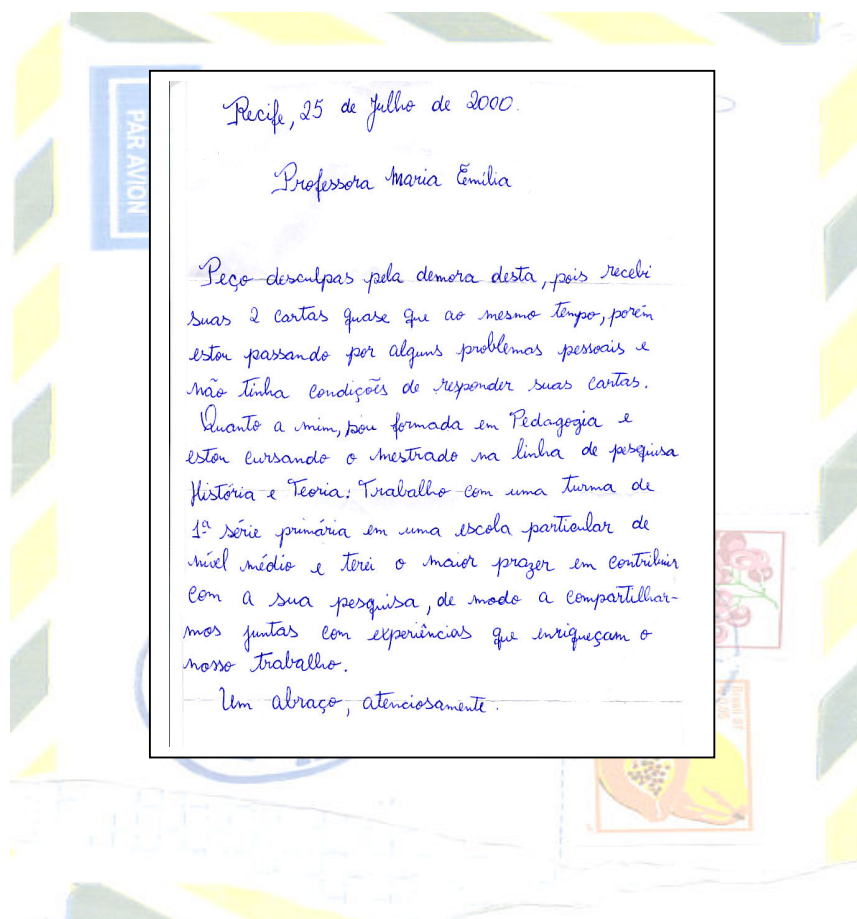 PAR AVION
Recife, 25 de Julho de 2000.
Professora Maria Emília
Peço desculpas pela demora desta, pois recebi
suas 2 cartas quase que ao mesmo tempo, porém
estou passando por alguns problemas pessoais e
não tinha condições de responder suas cartas.
Quanto a mim, sou formada em Pedagogia e
estou cursando o mestrado na linha de pesquisa
História e Teoria. Trabalho com uma turma de
1ª série primária em uma escola particular de
nível médio e terei o maior prazer em contribuir
com a sua pesquisa, de modo a compartilhar-
mos juntas com experiências que enriqueçam o
nosso trabalho.
Um abraço, atenciosamente.